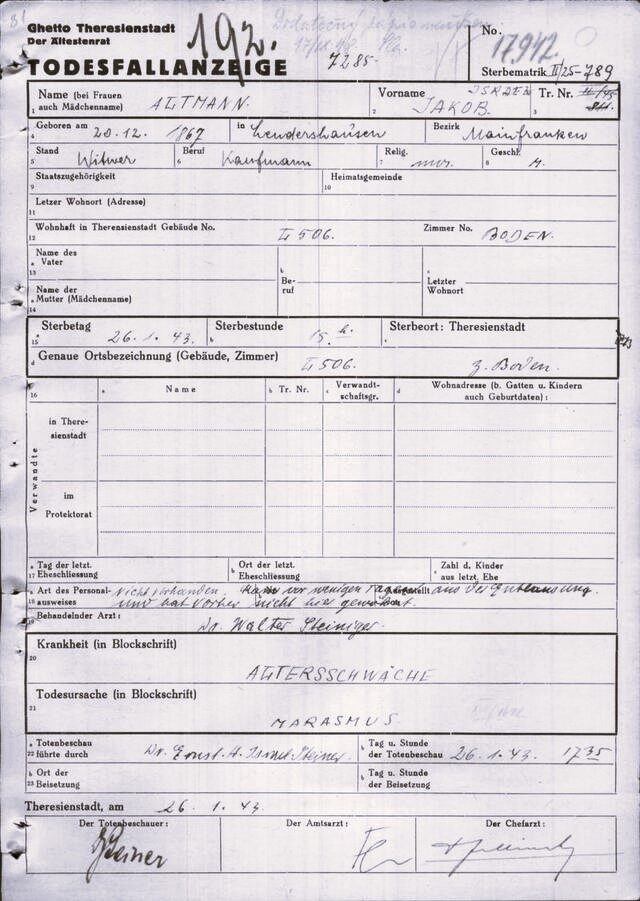 81
Ghetto Theresienstadt
Der Ältestenrat
TODESFALLANZEIGE
192.
7285
No. 17942
Sterbematrik II/25-789
1 Name (bei Frauen auch Mädchenname) ALTMANN.
2 Vorname ISRAEL JAKOB.
3 Tr. Nr. II/25
4 Geboren am 20.12. 1867 in Lendershausen Bezirk Mainfranken
5 Stand Witwer 6 Beruf Kaufmann 7 Relig. mos. 8 Geschl. M.
9 Staatszugehörigkeit
10 Heimatsgemeinde
11 Letzer Wohnort (Adresse)
12 Wohnhaft in Therensienstadt Gebäude No. L 506. Zimmer No. BODEN.
a Name des Vater
13
b Beruf
c Letzter Wohnort
a Name der Mutter (Mädchenname)
14
a Sterbetag 26.1.43. b Sterbestunde 15 h. c Sterbeort: Theresienstadt
15
d Genaue Ortsbezeichnung (Gebäude, Zimmer) L 506. Z. Boden.
16 a Name b Tr. Nr. c Verwandtschaftsgr. d Wohnadresse (b. Gatten u. Kindern auch Geburtdaten):
Verwandte
in Theresienstadt
im Protektorat
a Tag der letzt. 17 Eheschliessung b Ort der letzt. Eheschliessung c Zahl d. Kinder aus letzt. Ehe
a Art des Personal- Nicht vorhanden. Kam vor wenigen Tagen aus der Entlausung.
18 ausweises und hat vorher nicht hier gewohnt.
19 Behandelnder Arzt:
Dr. Walter Steiniger
Krankheit (in Blockschrift)
20
ALTERSSCHWÄCHE
Todesursache (in Blockschrift)
21
MARASMUS.
a Totenbeschau 22 führte durch Dr. Ernst A. Israel Steiner. b Tag u. Stunde der Totenbeschau 26.1.43. 17 35
a Ort der 23 Beisetzung b Tag u. Stunde der Beisetzung
Theresienstadt, am 26.1.43.
Der Totenbeschauer: Der Amtsarzt: Der Chefarzt:
Steiner